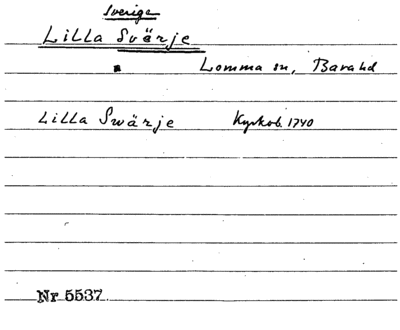 Sverige
Lilla Svärje
Lomma sn, Bara hd
Lilla Swärje Kyrkob. 1740
Nr 5537